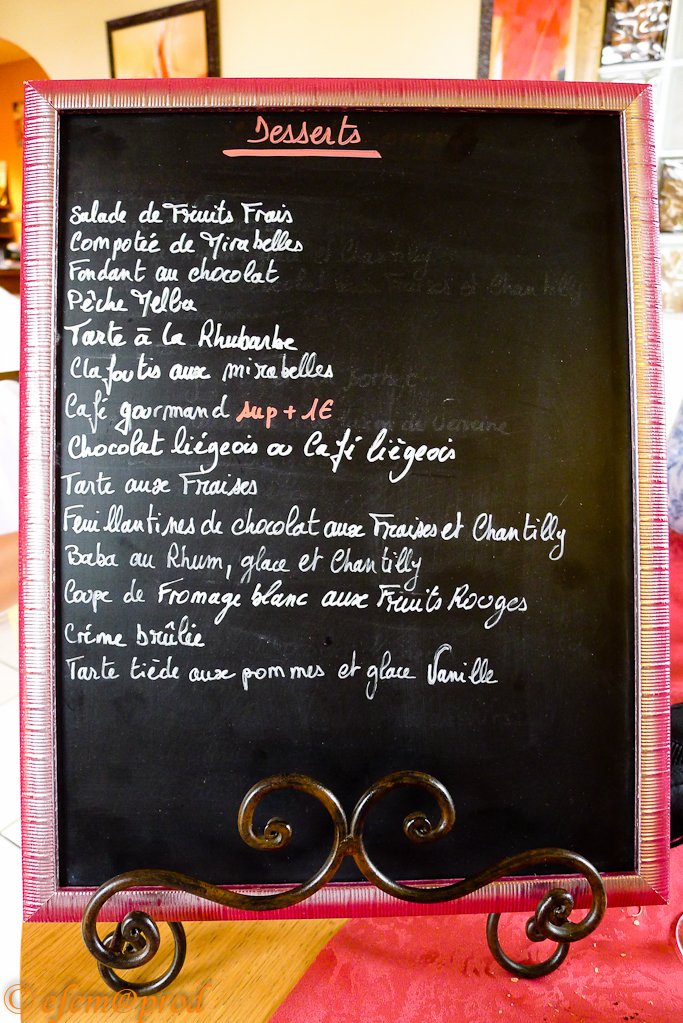 Desserts
Salade de Fruits Frais
Compotée de Mirabelles
Fondant au chocolat
Pêche Melba
Tarte à la Rhubarbe
Clafoutis aux mirabelles
Café gourmand sup + 1€
Chocolat liégeois ou Café liégeois
Tarte aux Fraises
Feuillantines de chocolat aux Fraises et Chantilly
Baba au Rhum, glace et Chantilly
Coupe de Fromage blanc aux Fruits Rouges
Crème brûlée
Tarte tiède aux pommes et glace Vanille
© cfcm@prod